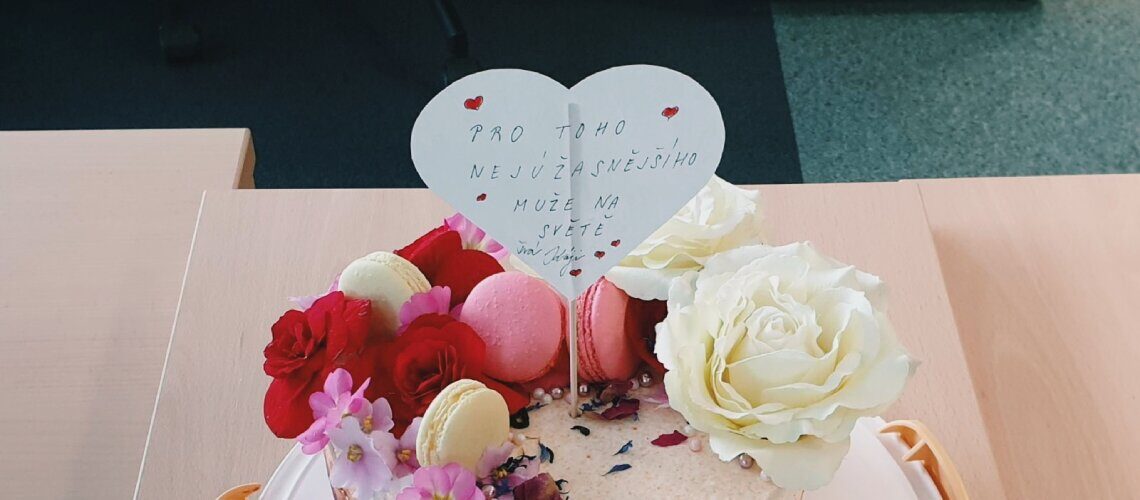 PRO TOHO
NEJÚŽASNĚJŠÍHO
MUŽE NA
SVĚTĚ